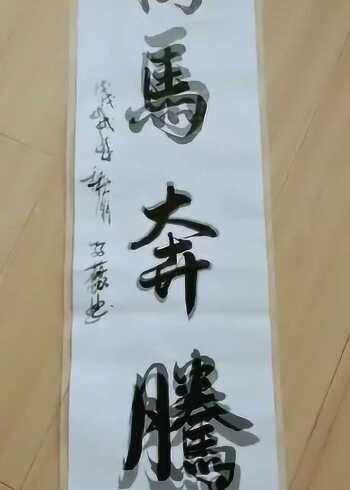 馬奔騰
戊戌年秋月